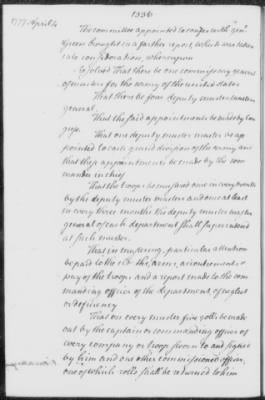 1336
1777 April 4
The committee appointed to confer with Gen.l
Green brought in a farther report, which was taken
into consideration, whereupon
Resolved That there be one commissary general
of muster for the army of the united states
That there be four deputy muster masters
general.
That the said appointments be made by Con
gress.
That one deputy muster master be ap
pointed to each grand division of the army and
that these appointments be made by the com
mander in chief
That the troops be mustered once in every month
by the deputy muster masters and once at least
in every three months the deputy muster master
general of each department shall superintend
at such muster.
That in mustering, particular attention
be paid to the arms, accoutrements &
pay of the troops and a report made to the com
manding officer of the department, of neglect
or deficiency
That on every muster five rolls be made
out by the captain or commanding officer of
every company or troop sworn to and signed
by him and one other commissioned officer,
one of which rolls shall be returned to him